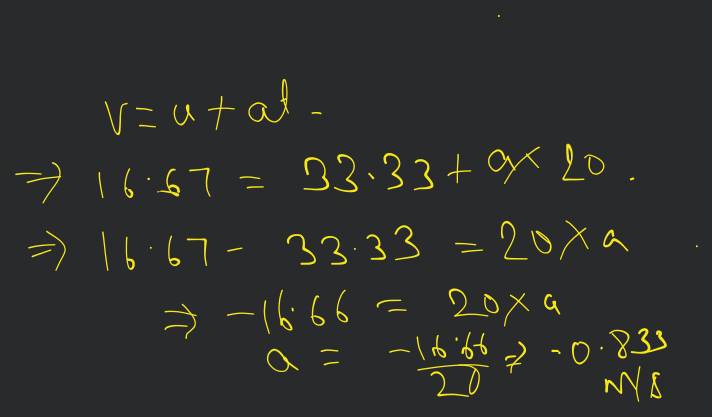 v = u + at -
⇒ 16.67 = 33.33 + a × 20 .
⇒ 16.67 - 33.33 = 20 × a
⇒ -16.66 = 20 × a
a = -16.66/20 ⇒ -0.833
m/s